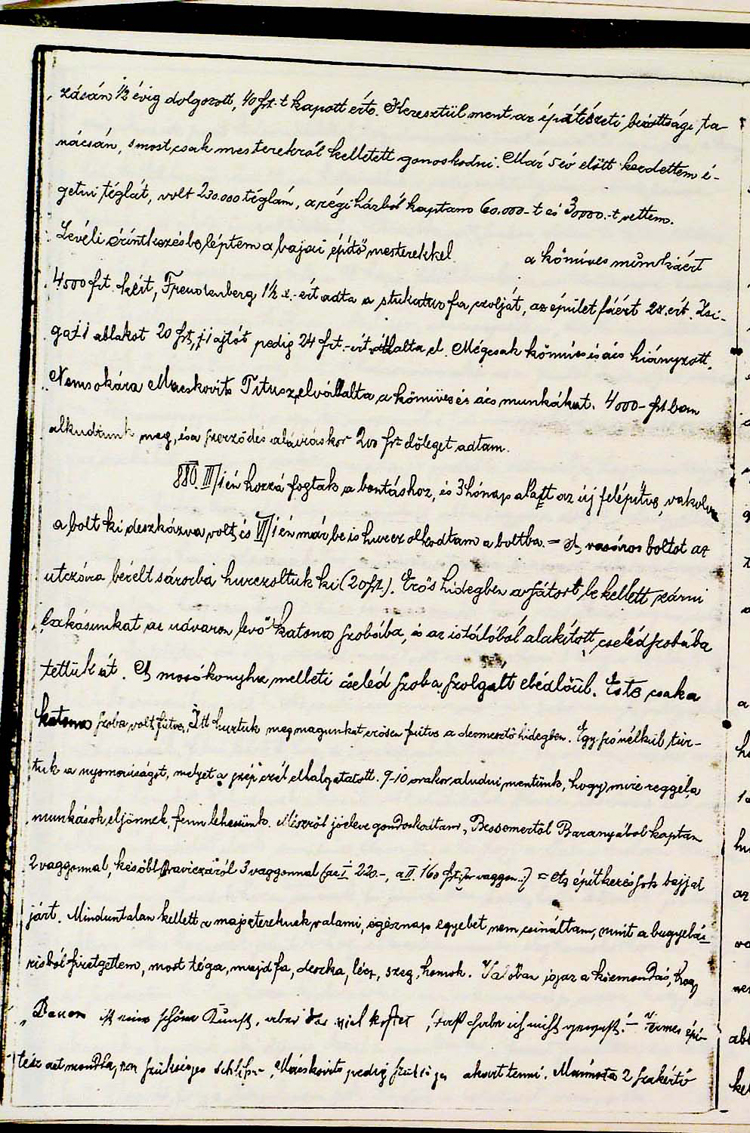 zásán ½ évig dolgozott, 40 frt-t kapott érte. Keresztül ment az építészeti bizottsági ta-
nácsán, s most csak mesterekről kelletett gonoskodni. Már 5 év előtt kezdettem é-
getni téglát, volt 230.000 téglám, a régi házból kaptam 60.000-t és 30000-t vettem.
Levéli érintkezésbe léptem a bajai építőmesterekkel a kőmíves munkáért
4000 frt. kért, Freudenberg 1½ x.-ért adta a stukatur fa szolját, az épület fáért 28.ért.
gati ablakot 20 frt, ajtót pedig 24 frt.-ért vállalta el. Mégcsak kőmíves és ács hiányzott.
Nemsokára Maskovits Titusz elvállalta a kőmíves és ács munkákat. 4000-frtban
alkudtunk meg, és a szerződés aláíráskor 200 frt előleget adtam.
880. III/1 én hozzá fogtak a bontáshoz, és 3 hónap alatt az új felépítve, vakolva
a bolt ki deszkázva volt, és VI/1 én már be is hurczolkodtam a boltba. = A vasáros boltot az
utczára bérelt sátorba hurczoltuk ki (20 frt). Erős hidegben a sátort be kellett zárni
lakásunkat az udvaron levő katona szobába, és az istálóból alakított cselédszobába
tettük át. A mosókonyha melleti cseléd szoba szolgált ebédlőül. Este csak a
katona szoba volt fűtve, Itt húztuk meg magunkat erősen fűtve a dermesztő hidegben. Egy szó nélkül tűr-
tük a nyomorúságot, melyet a szép czél elhalgatatott. 9-10 órakor aludni mentünk, hogy mire reggel a
munkások eljönnek, fenn lehessünk. Mészről jóeleve gondoskodtam, Bessemertől Baranyából kaptam
2 vaggonnal, később 3 vaggonnal (az I 220-, a II. 160 frt vaggon.) = Az építkezés sok bajjal
járt. Minduntalan kellett a majsztereknek valami, egésznap egyebet nem csináltam, mint a bugyelá-
risból fizetgettem, most téga, majd fa, deszka, lécz, szeg, homok. Valóban igaz a közmondás, hogy
"Bauen ist eine schöne Kunst, aber das viel kostet, hab ich nicht gewusst! - épí-
tész azt mondta, nem szükséges, Maskovits pedig akart tenni. 2 szakértő